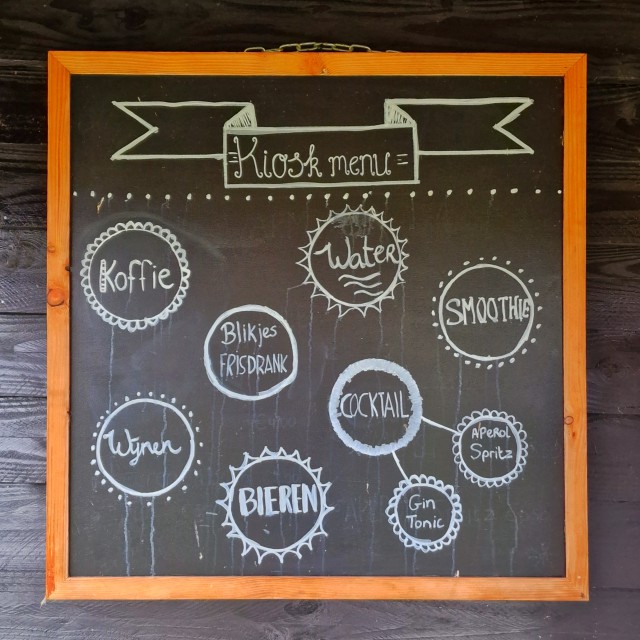 Kiosk menu
Koffie
Water
SMOOTHIE
Blikjes
FRISDRANK
COCKTAIL
Wijnen
APEROL
Spritz
BIEREN
Gin
Tonic